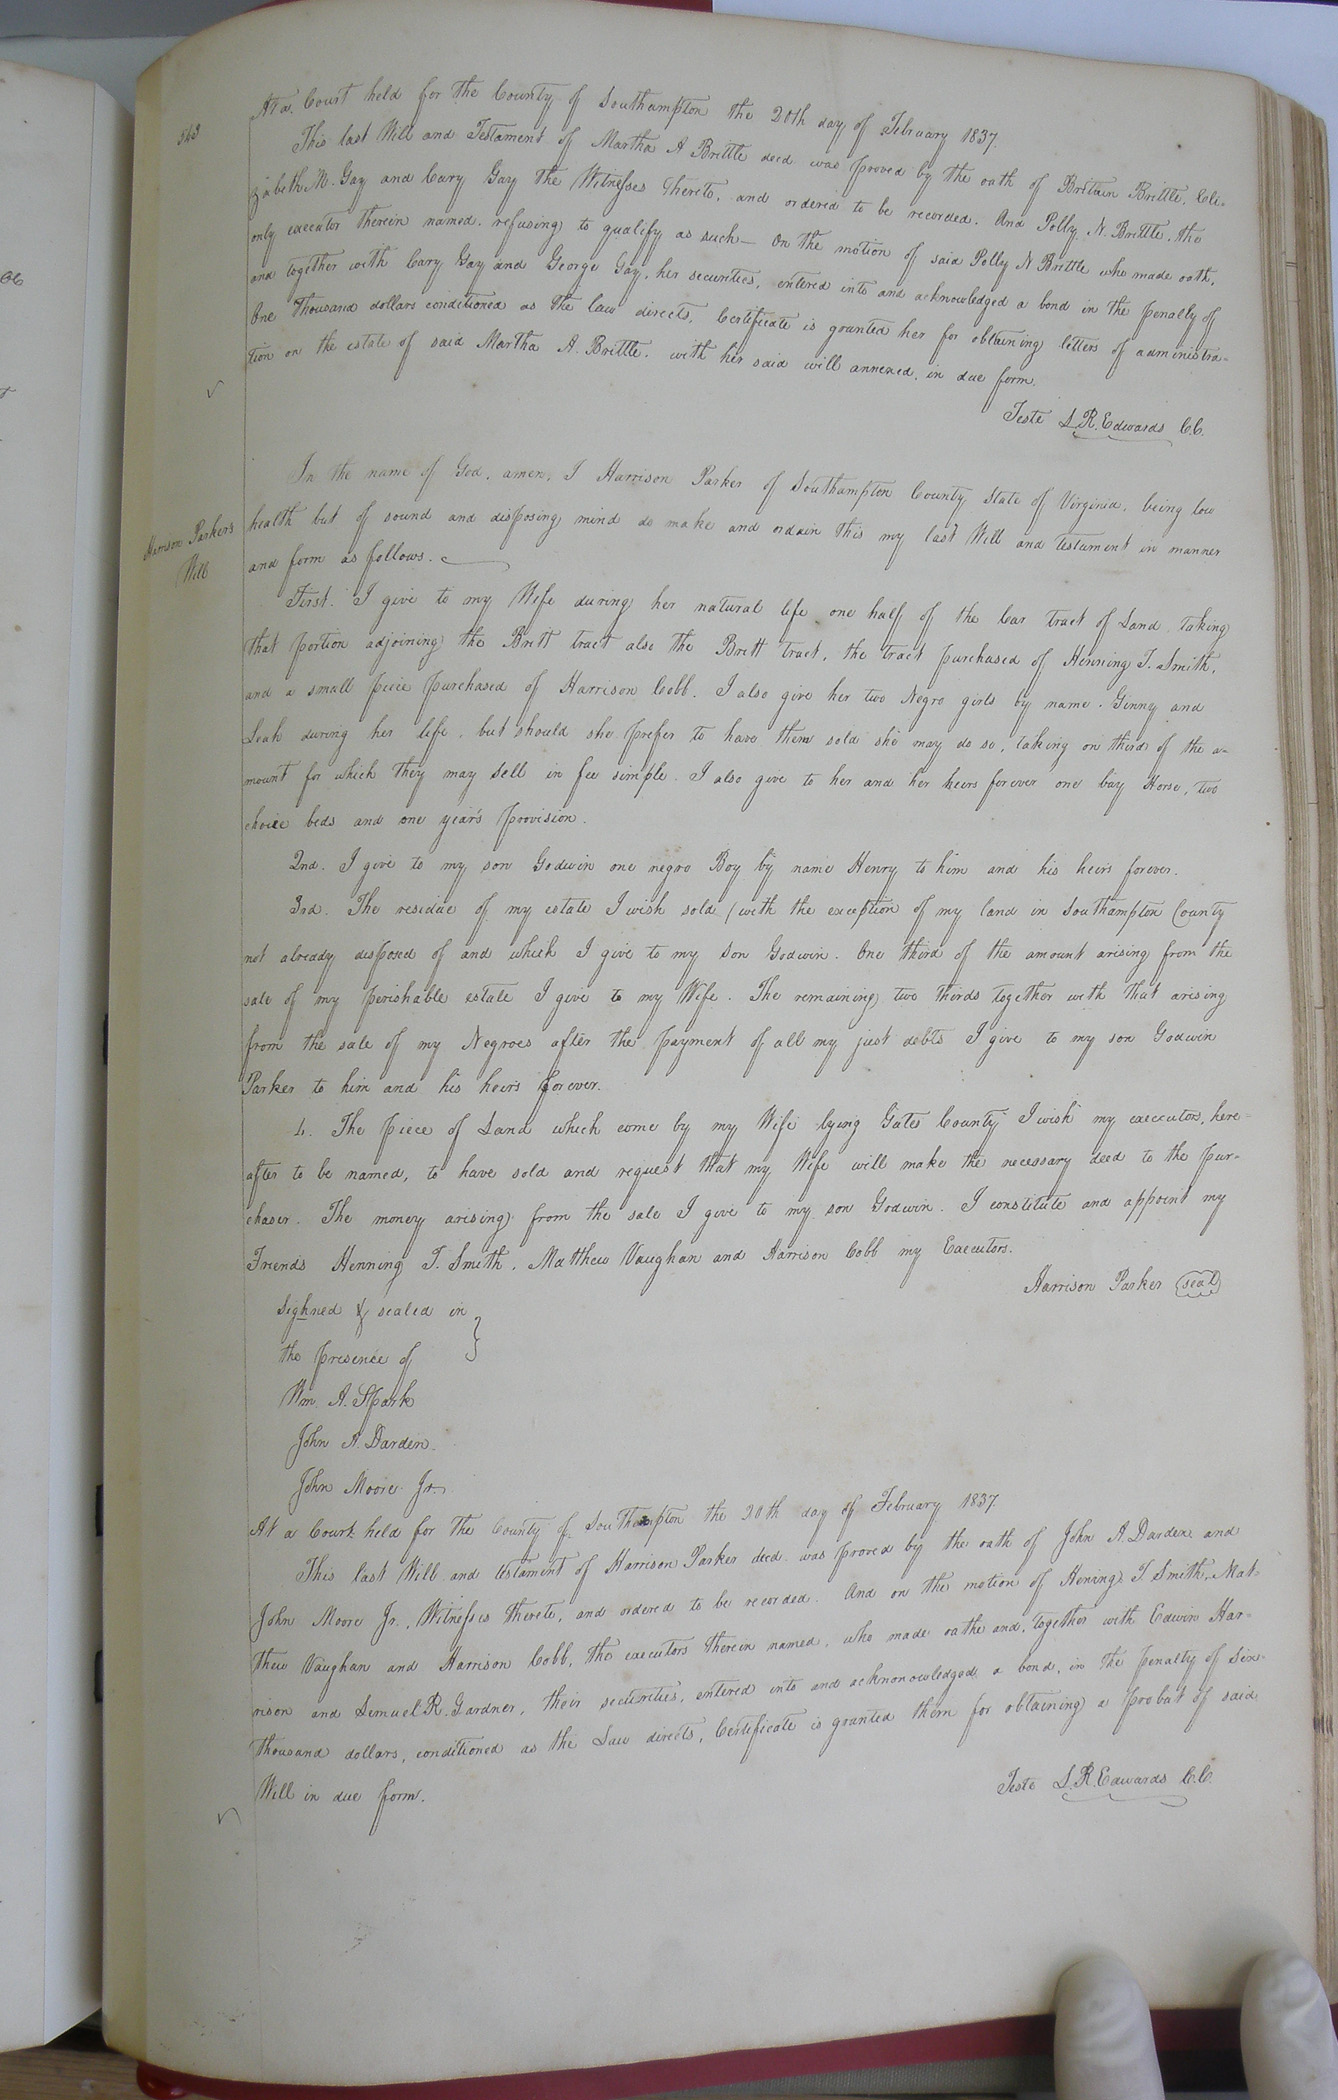 548
At a Court held for the County of Southampton the 20th day of February 1837.
This last Will and Testament of Martha A Brittle decd was proved by the oath of Britain Brittle, Eli=
zabeth M. Gay and Cary Gay the Witnesses thereto, and ordered to be recorded. And Polly N. Brittle, the
only executor therein named, refusing to qualify as such — On the motion of said Polly N Brittle who made oath,
and together with Cary Gay and George Gay, her securities, entered into and acknowledged a bond in the penalty of
One Thousand dollars conditioned as the law directs, Certificate is granted her for obtaining letters of administra=
tion on the estate of said Martha A. Brittle, with her said will annexed, in due form.
Teste L. R. Edwards C.C.
Harrison Parker's
Will
In the name of God, amen, I Harrison Parker of Southampton County State of Virginia, being low
health but of sound and disposing mind do make and ordain this my last Will and testament in manner
and form as follows.
First. I give to my Wife during her natural life one half of the Car tract of Land, taking
that portion adjoining the Brett tract also the Brett tract, the tract purchased of Henning T. Smith,
and a small piece purchased of Harrison Cobb. I also give her two Negro girls by name. Ginny and
Leah during her life, but should she prefer to have them sold she may do so, taking on third of the a=
mount for which they may sell in fee simple. I also give to her and her heirs forever one bay Horse, two
choice beds and one year's provision.
2nd. I give to my son Godwin one negro Boy by name Henry to him and his heirs forever.
3rd. The residue of my estate I wish sold (with the exception of my land in Southampton County
not already disposed of and which I give to my son Godwin. One third of the amount arising from the
sale of my perishable estate I give to my Wife. The remaining two thirds together with that arising
from the sale of my Negroes after the payment of all my just debts I give to my son Godwin
Parker to him and his heirs forever.
4. The piece of Land which come by my Wife lying Gates County I wish my executors, here=
after to be named, to have sold and request that my Wife will make the necessary deed to the pur=
chaser. The money arising from the sale I give to my son Godwin. I constitute and appoint my
Friends Henning T. Smith, Matthew Vaughan and Harrison Cobb my Executors.
Harrison Parker seal
Sighned & sealed in
the presence of
Wm. A. Spark
John A. Darden.
John Moore Jr.
At a Court held for the County of Southampton the 20th day of February 1837.
This last Will and testament of Harrison Parker decd. was proved by the oath of John A. Darden and
John Moore Jr., Witnesses thereto, and ordered to be recorded. And on the motion of Hening T. Smith, Mat=
thew Vaughan and Harrison Cobb, the executors therein named, who made oathe and, together with Edwin Har=
rison and Lemuel R. Gardner, their securities, entered into and acknonowledged a bond, in the penalty of Six
thousand dollars, conditioned as the Law directs, Certificate is granted them for obtaining a probat of said
Will in due form.
Teste L. R. Edwards C.C.